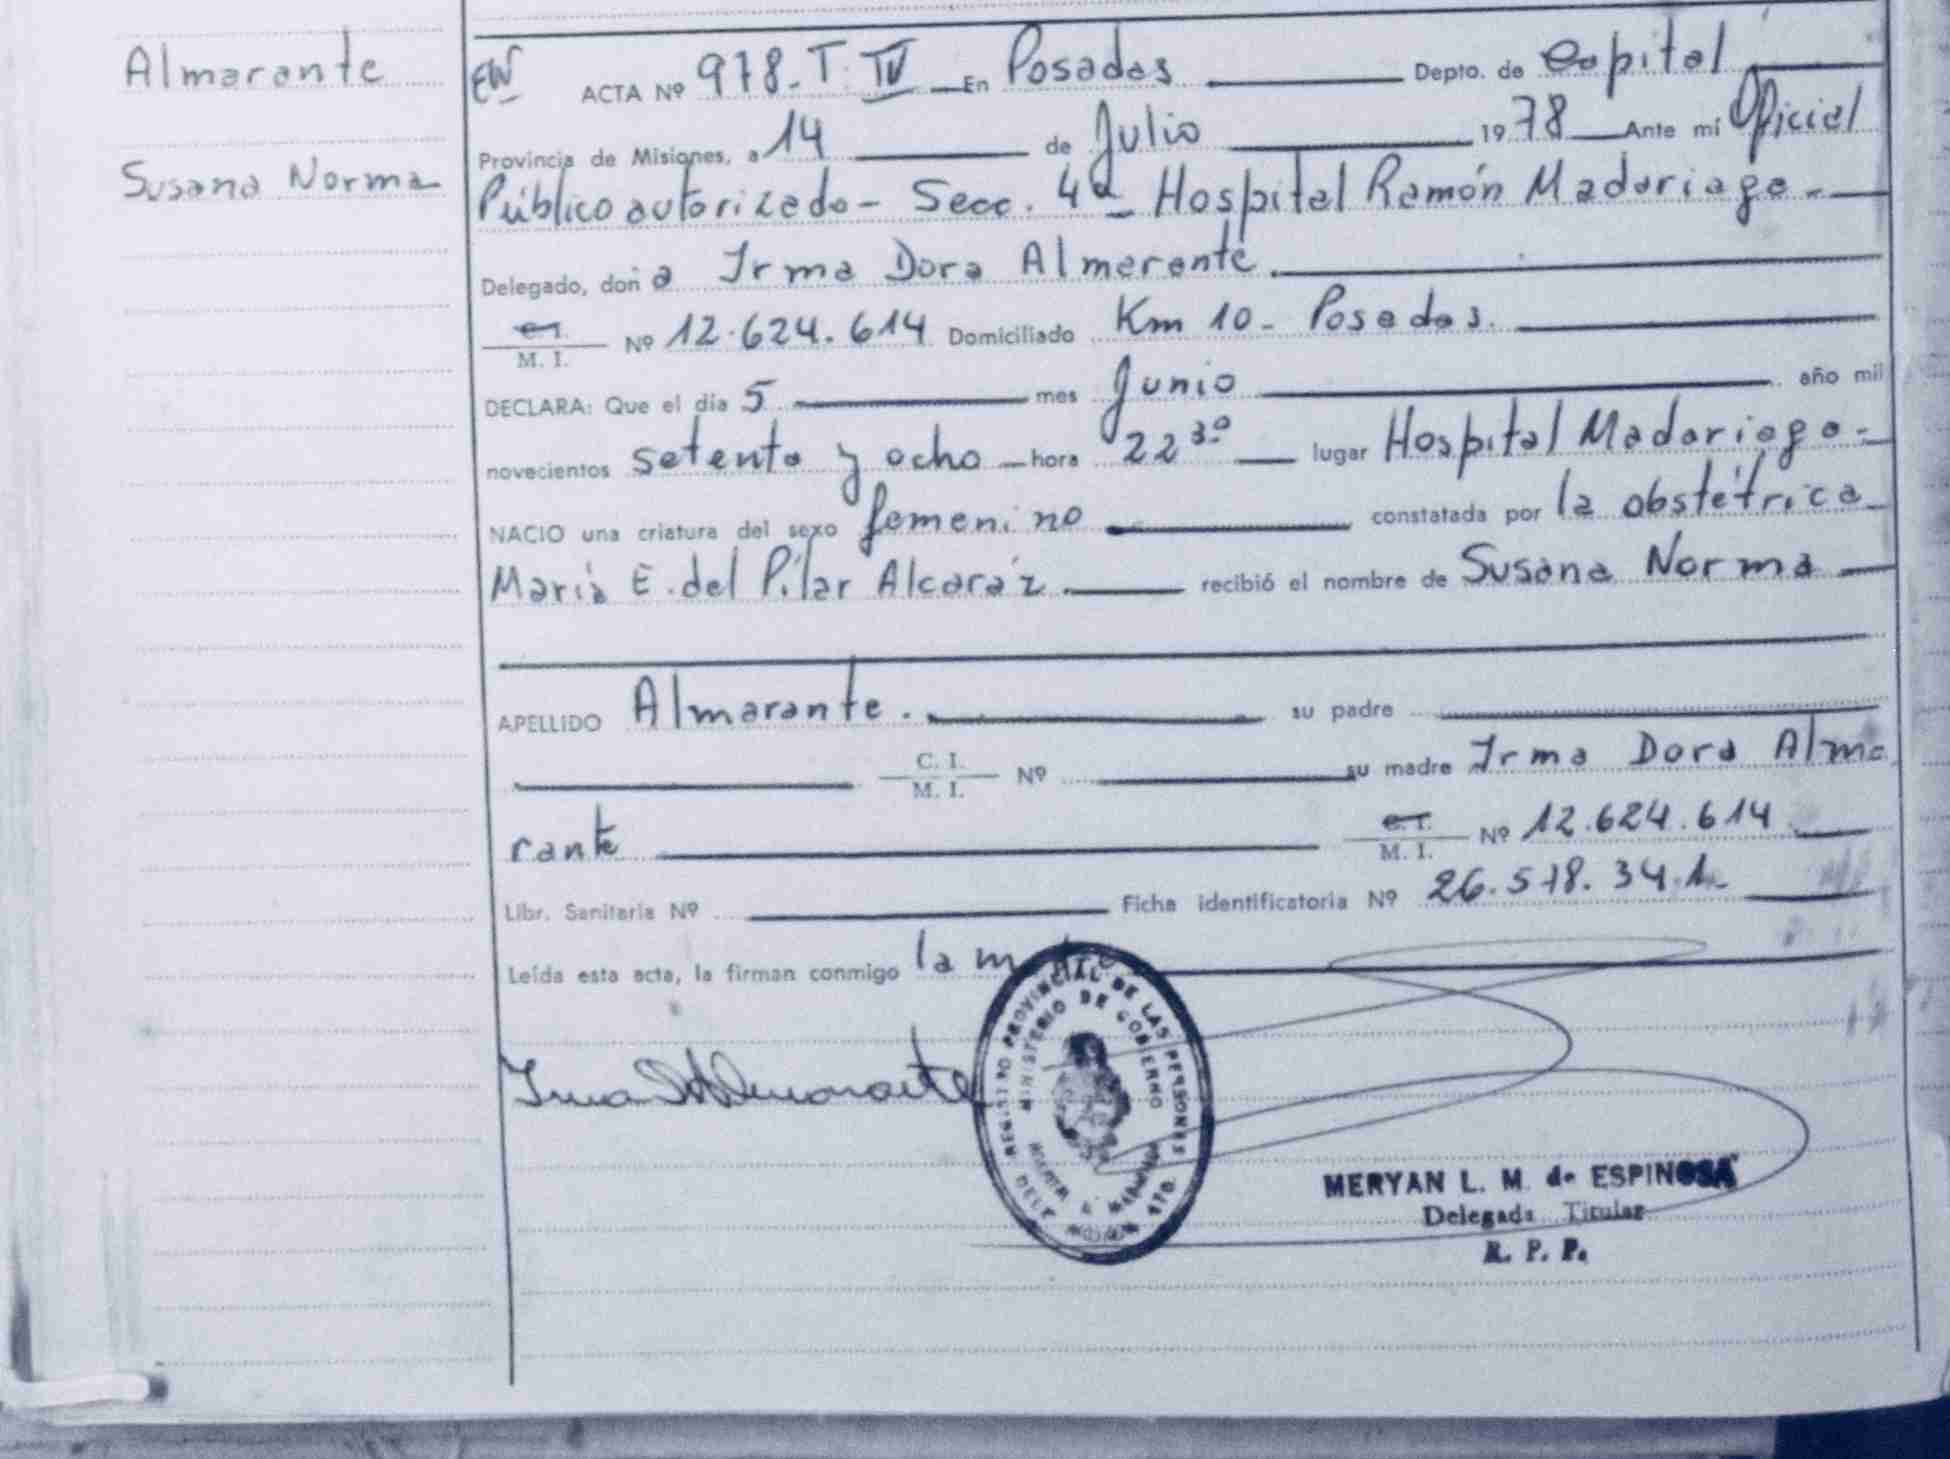 Almarante
Susana Norma
EW ACTA Nº 978 - T. IV - En Posadas Depto. de Capital
Provincia de Misiones, a 14 de Julio 1978 Ante mí Oficial
Público autorizado - Secc. 4ª - Hospital Ramón Madariaga -
Delegado, doña Irma Dora Almarante.
C. I.
M. I. Nº 12.624.614 Domiciliado Km 10 - Posadas.
DECLARA: Que el día 5 mes Junio año mil
novecientos setenta y ocho hora 22 30 lugar Hospital Madariaga -
NACIO una criatura del sexo femenino constatada por la obstétrica
María E. del Pilar Alcaráz. recibió el nombre de Susana Norma
APELLIDO Almarante. su padre
C. I.
M. I. Nº su madre Irma Dora Alma
rante C. I.
M. I. Nº 12.624.614
Libr. Sanitaria Nº Ficha identificatoria Nº 26.578.341.
Leída esta acta, la firman conmigo la
Irma D Almarante
REGISTRO PROVINCIAL DE LAS PERSONAS
MINISTERIO DE GOBIERNO
MERYAN L. M. de ESPINOSA
Delegada Titular
R. P. P.